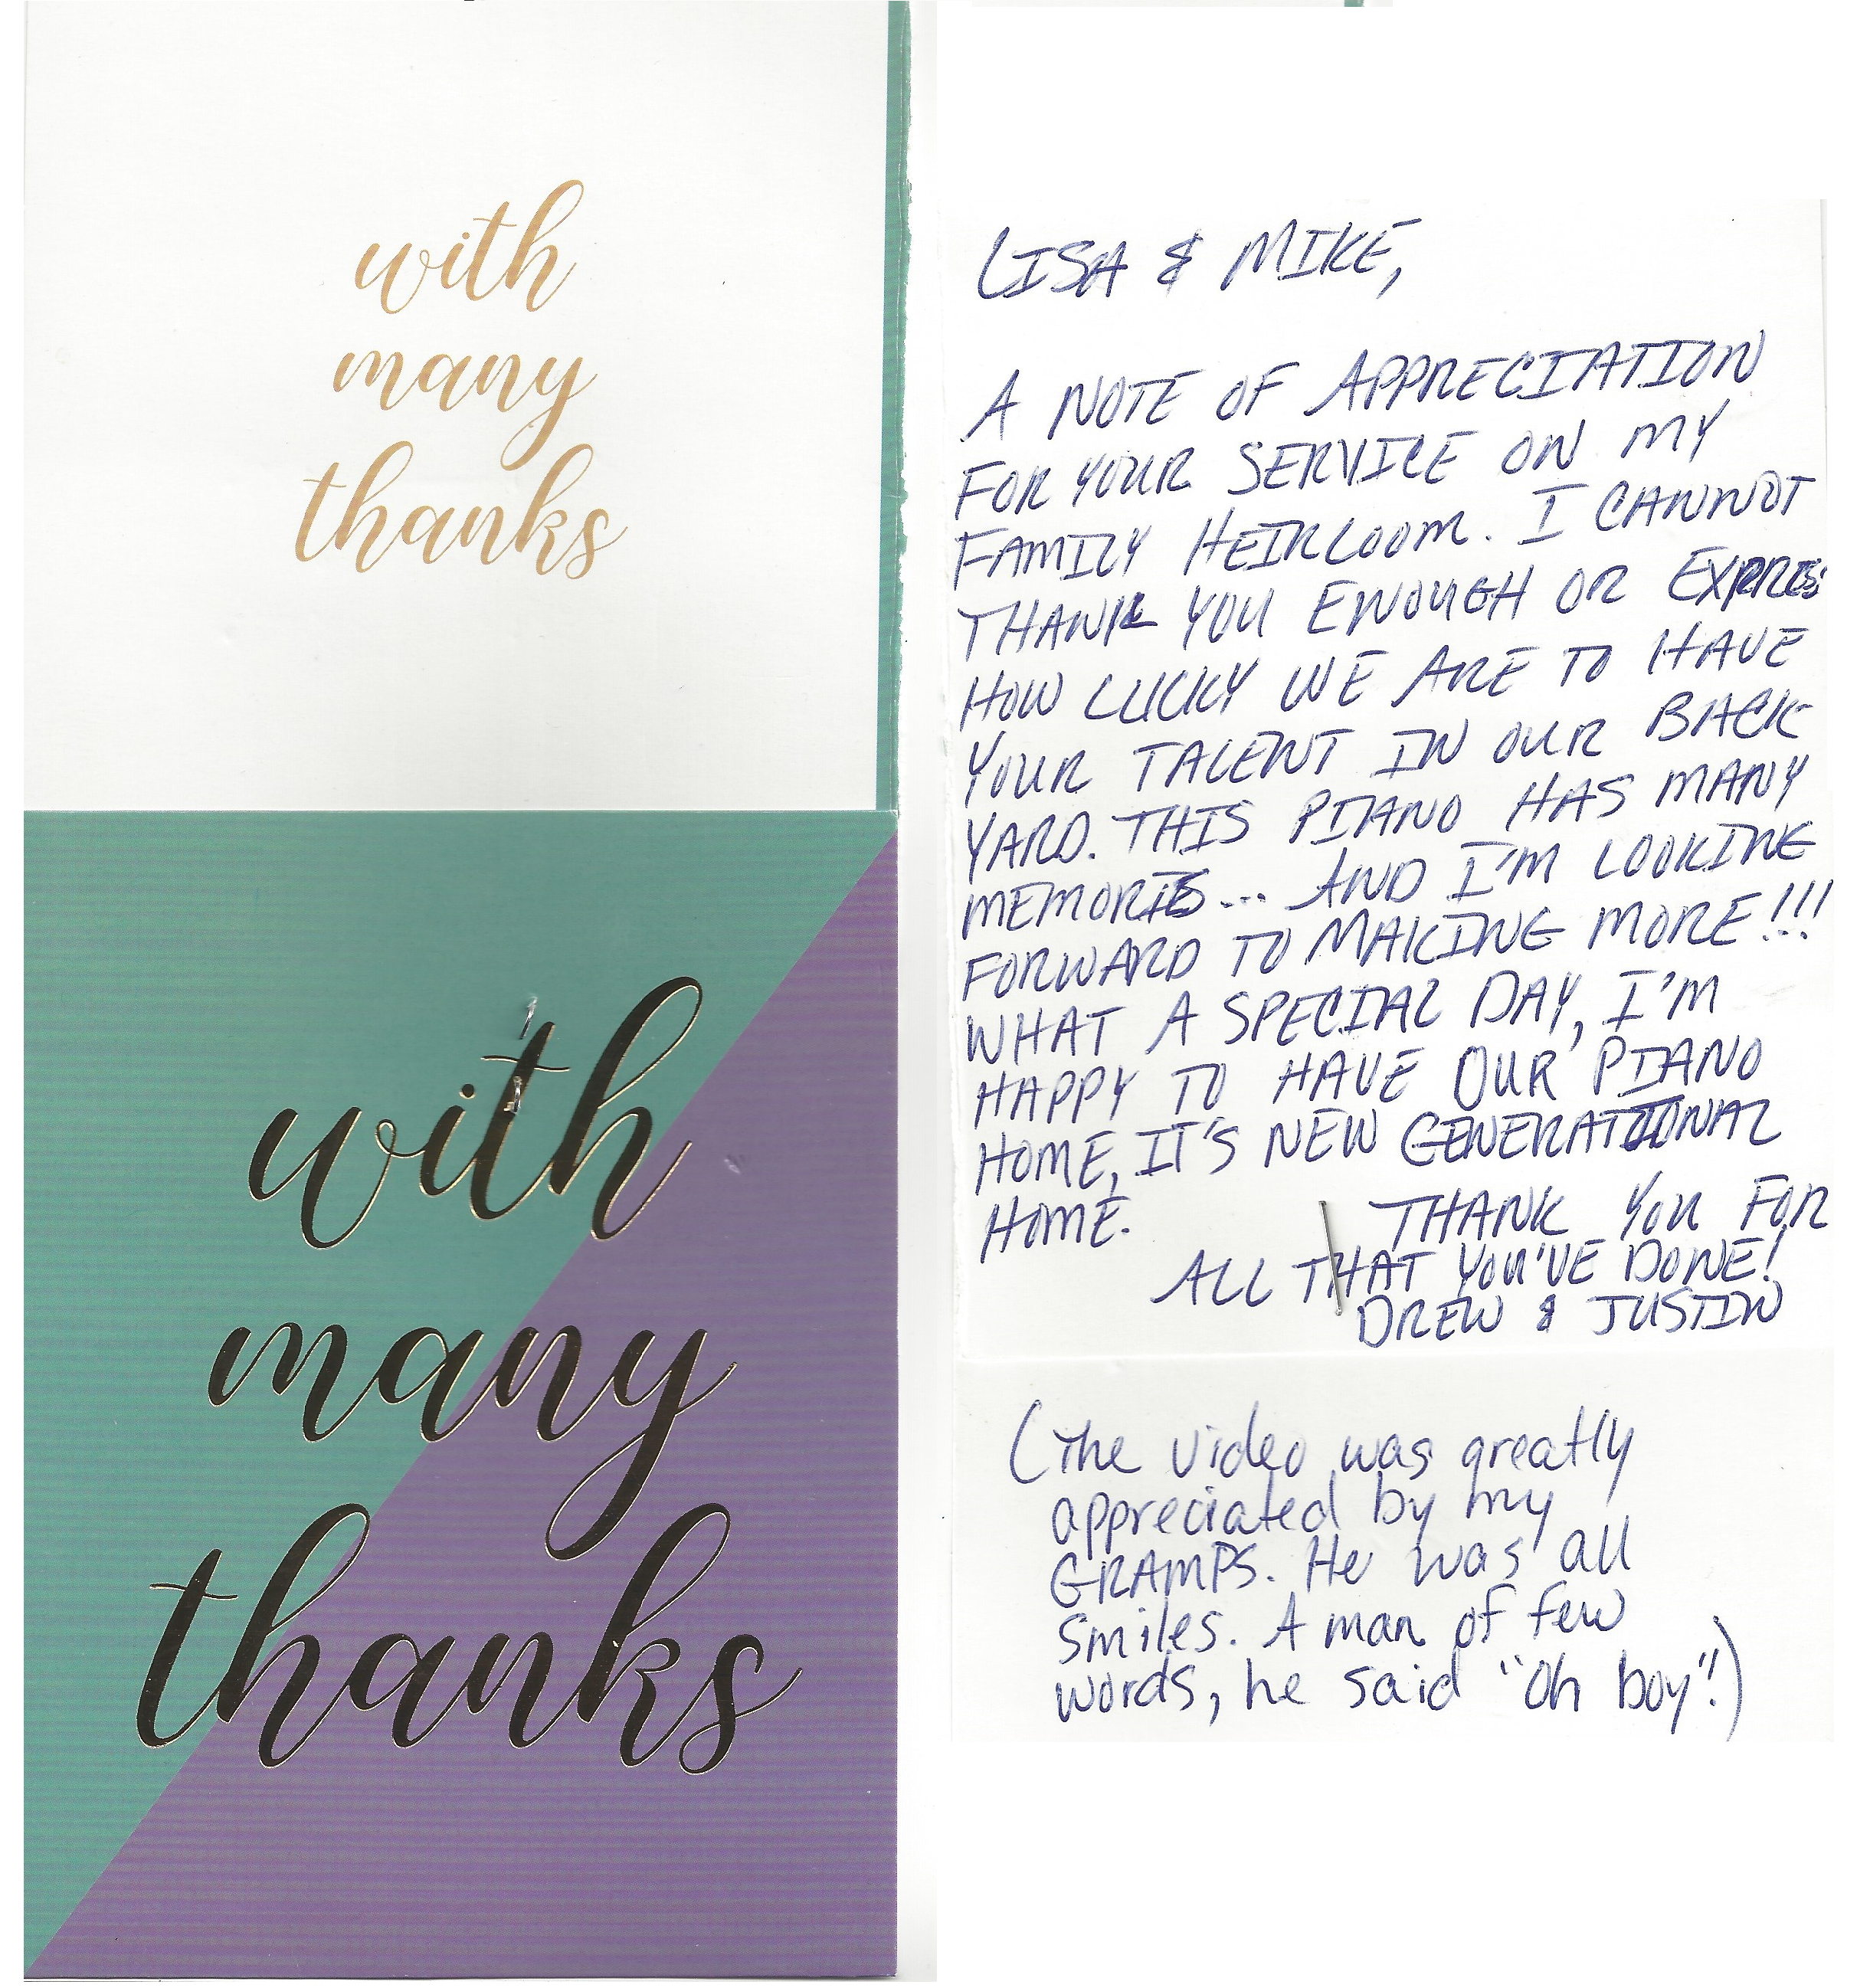 with
many
thanks
with
many
thanks
LISA & MIKE,
A NOTE OF APPRECIATION
FOR YOUR SERVICE ON MY
FAMILY HEIRLOOM. I CANNOT
THANK YOU ENOUGH OR EXPRESS
HOW LUCKY WE ARE TO HAVE
YOUR TALENT IN OUR BACK
YARD. THIS PIANO HAS MANY
MEMORIES... AND I'M LOOKING
FORWARD TO MAKING MORE!!!
WHAT A SPECIAL DAY, I'M
HAPPY TO HAVE OUR PIANO
HOME, IT'S NEW GENERATIONAL
HOME.
THANK YOU FOR
ALL THAT YOU'VE DONE!
DREW & JUSTIN
(The video was greatly
appreciated by my
GRAMPS. He was all
smiles. A man of few
words, he said "Oh boy"!)